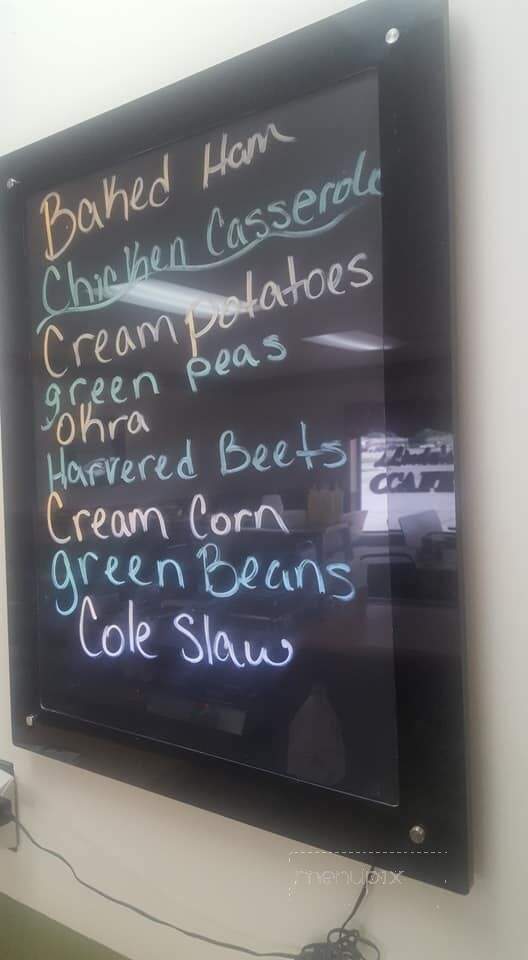 Baked Ham
Chicken Casserole
Cream potatoes
green peas
Okra
Harvered Beets
Cream Corn
green Beans
Cole Slaw
menupix